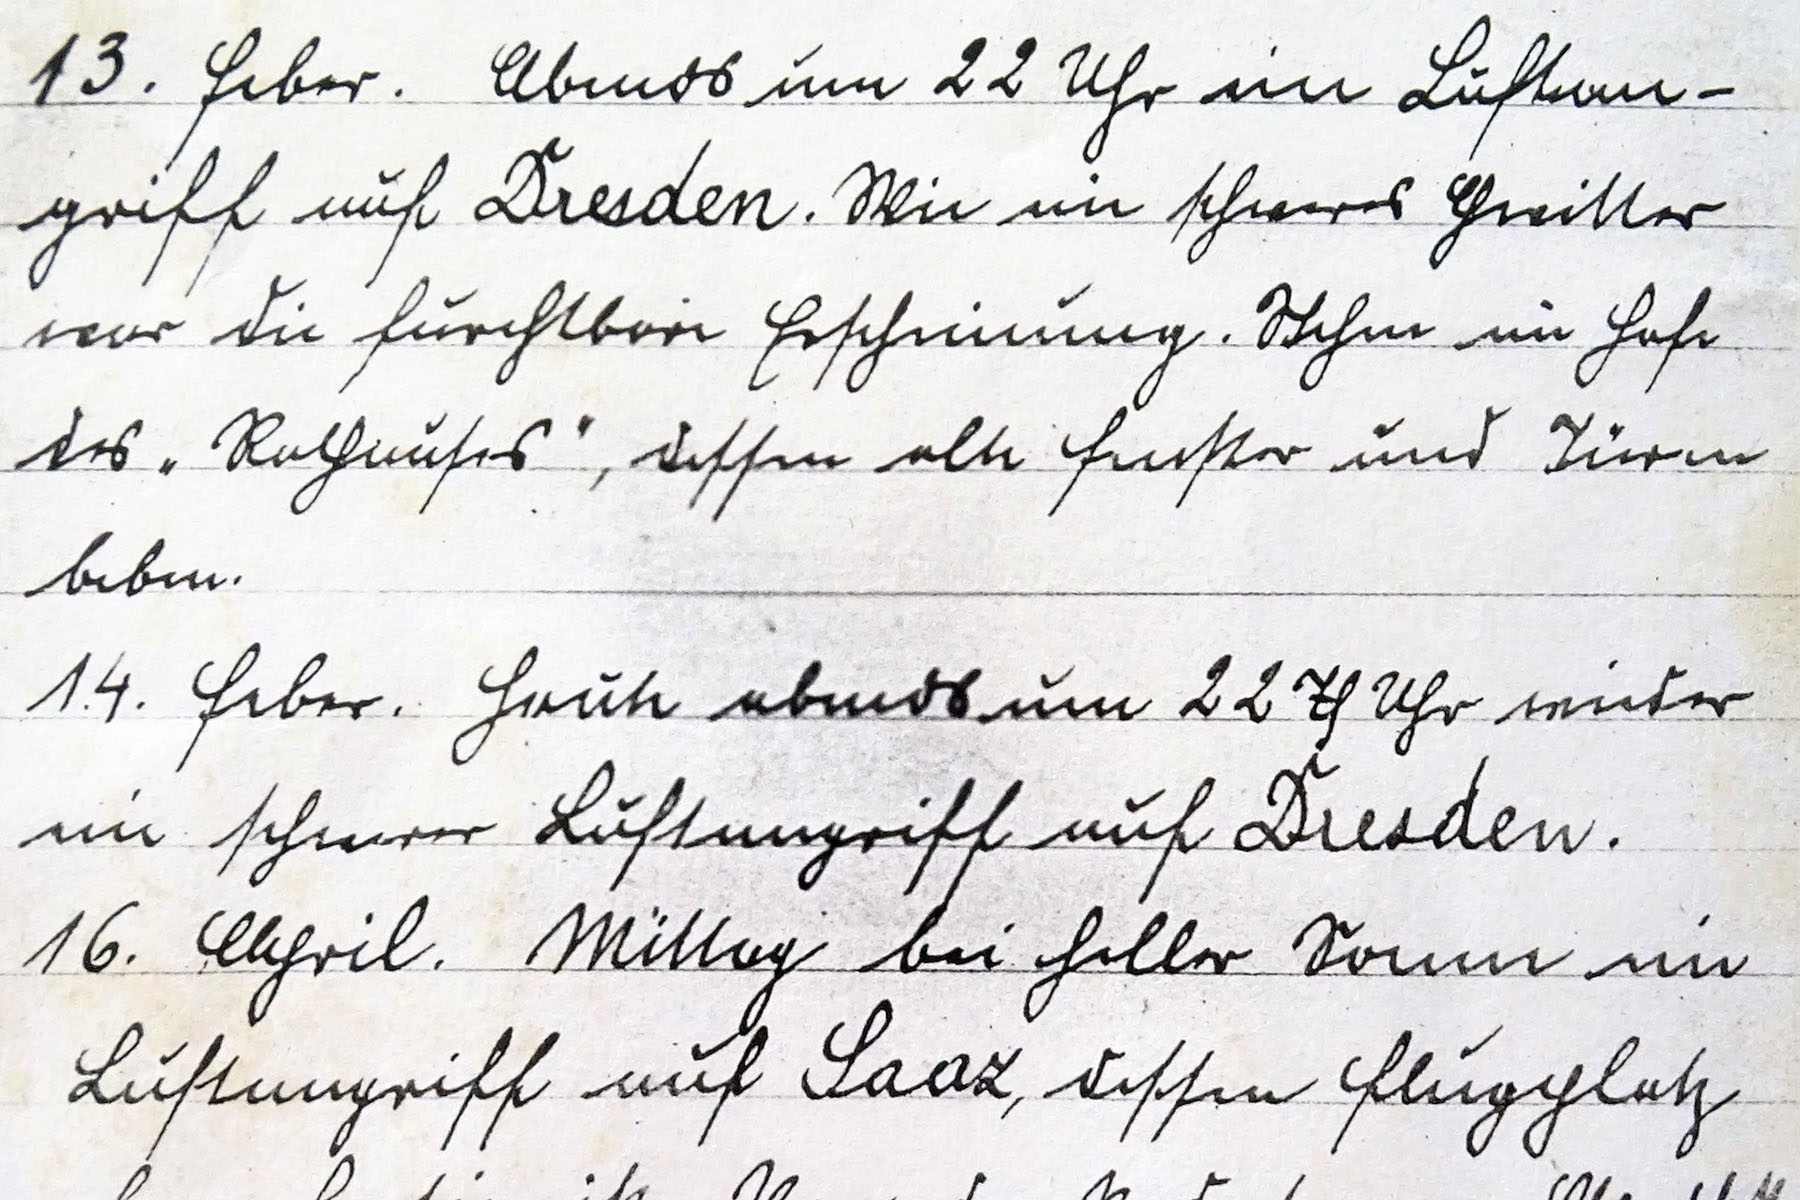 13. Feber. Abends um 22 Uhr ein Luftan-
griff auf Dresden. Wie ein schweres Gewitter
war die furchtbare Erscheinung. Stehen im Hofe
des „Rathauses", dessen alte Fenster und Türen
beben.
14. Feber. Heute abends um 22 Uhr wieder
ein schwerer Luftangriff auf Dresden.
16. April. Mittag bei heller Sonne ein
Luftangriff auf Saaz, dessen Flugplatz